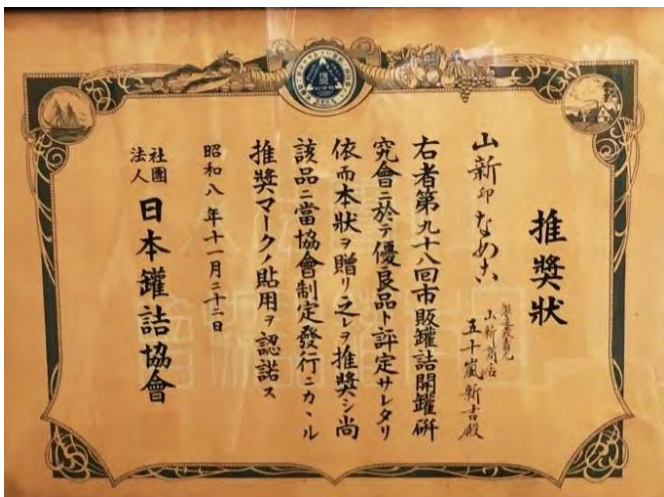 推奬狀
山新印なめこ
製造業者兼
山新商店
五十嵐新吉殿
右者第九十八回市販罐詰開罐硏
究會ニ於テ優良品ト評定サレタリ
依而本狀ヲ贈リ之レヲ推奬シ尚
該品ニ當協會制定發行ニカヽル
推奬マークノ貼用ヲ認諾ス
昭和八年十一月二十二日
社團
法人
日本罐詰協會